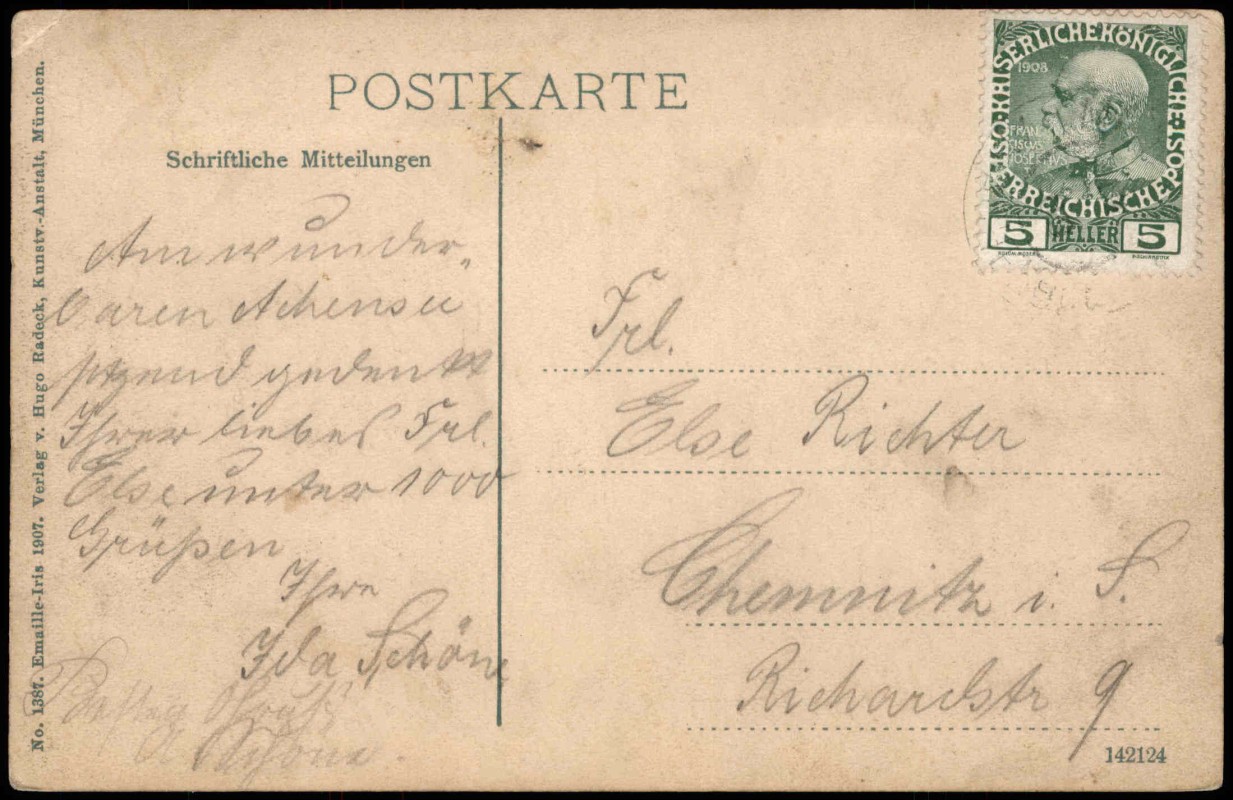 POSTKARTE
Schriftliche Mitteilungen
Am wunder-
baren Achensee
sitzend gedenkt
Ihrer liebes Frl.
Else unter 1000
Grüßen
Ihre
Ida Schöne
Besten Gruß
A Schöne
Frl.
Else Richter
Chemnitz i. S.
Richardstr 9
142124
No. 1387. Emaille-Iris 1907. Verlag v. Hugo Radeck, Kunstv.-Anstalt, München.
KAISERLICHE KÖNIGLICHE ÖSTERREICHISCHE POST
1908
FRAN
CISCVS
IOSEPHVS I
5 HELLER 5